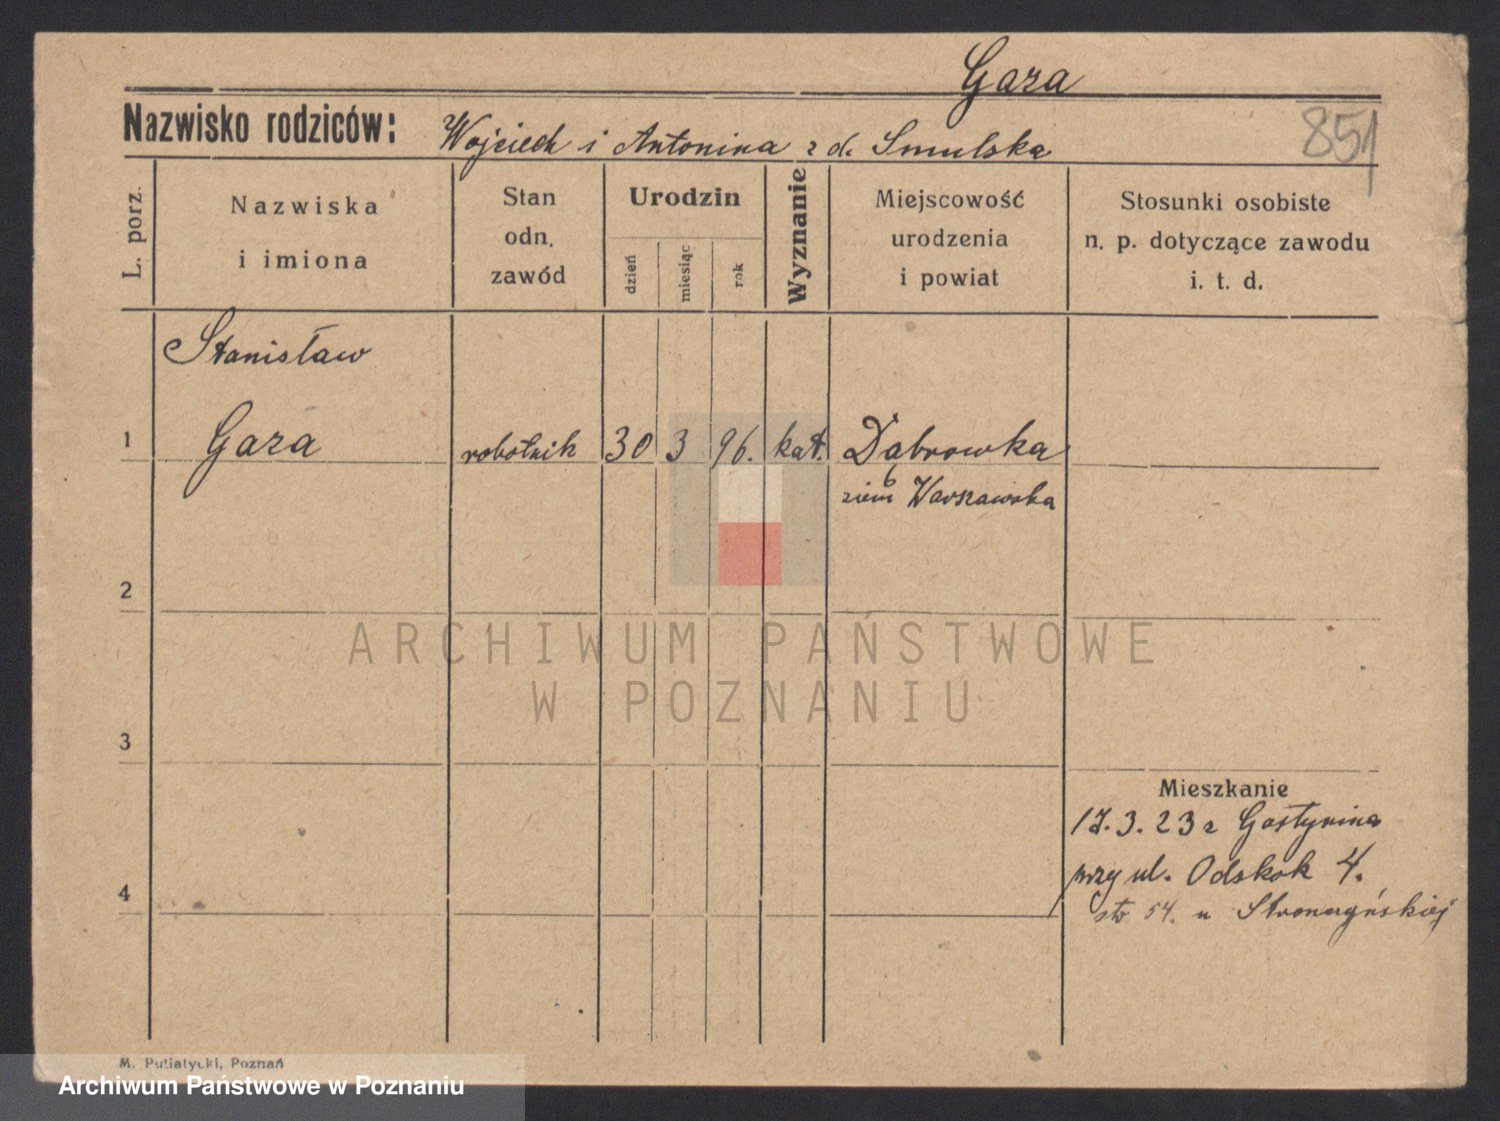 Gaza
851
Nazwisko rodziców: Wojciech i Antonina z d. Smulska
L. porz.
Nazwiska
i imiona
Stan
odn.
zawód
Urodzin
dzień
miesiąc
rok
Wyznanie
Miejscowość
urodzenia
i powiat
Stosunki osobiste
n. p. dotyczące zawodu
i. t. d.
Stanisław
1 Gaza robotnik 30 3 96. kat. Dąbrowka
ziem Warszawska
2
ARCHIWUM PAŃSTWOWE
W POZNANIU
3
Mieszkanie
17.3.23 z Gostynina
przy ul. Odskok 4.
4
54. u
M. Putiatycki, Poznań
Archiwum Państwowe w Poznaniu